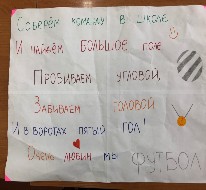 Соберём команду в школе
И найдём большое поле
Пробиваем угловой,
Забиваем головой
И в воротах пятый гол!
Очень любим мы
ФУТБОЛ